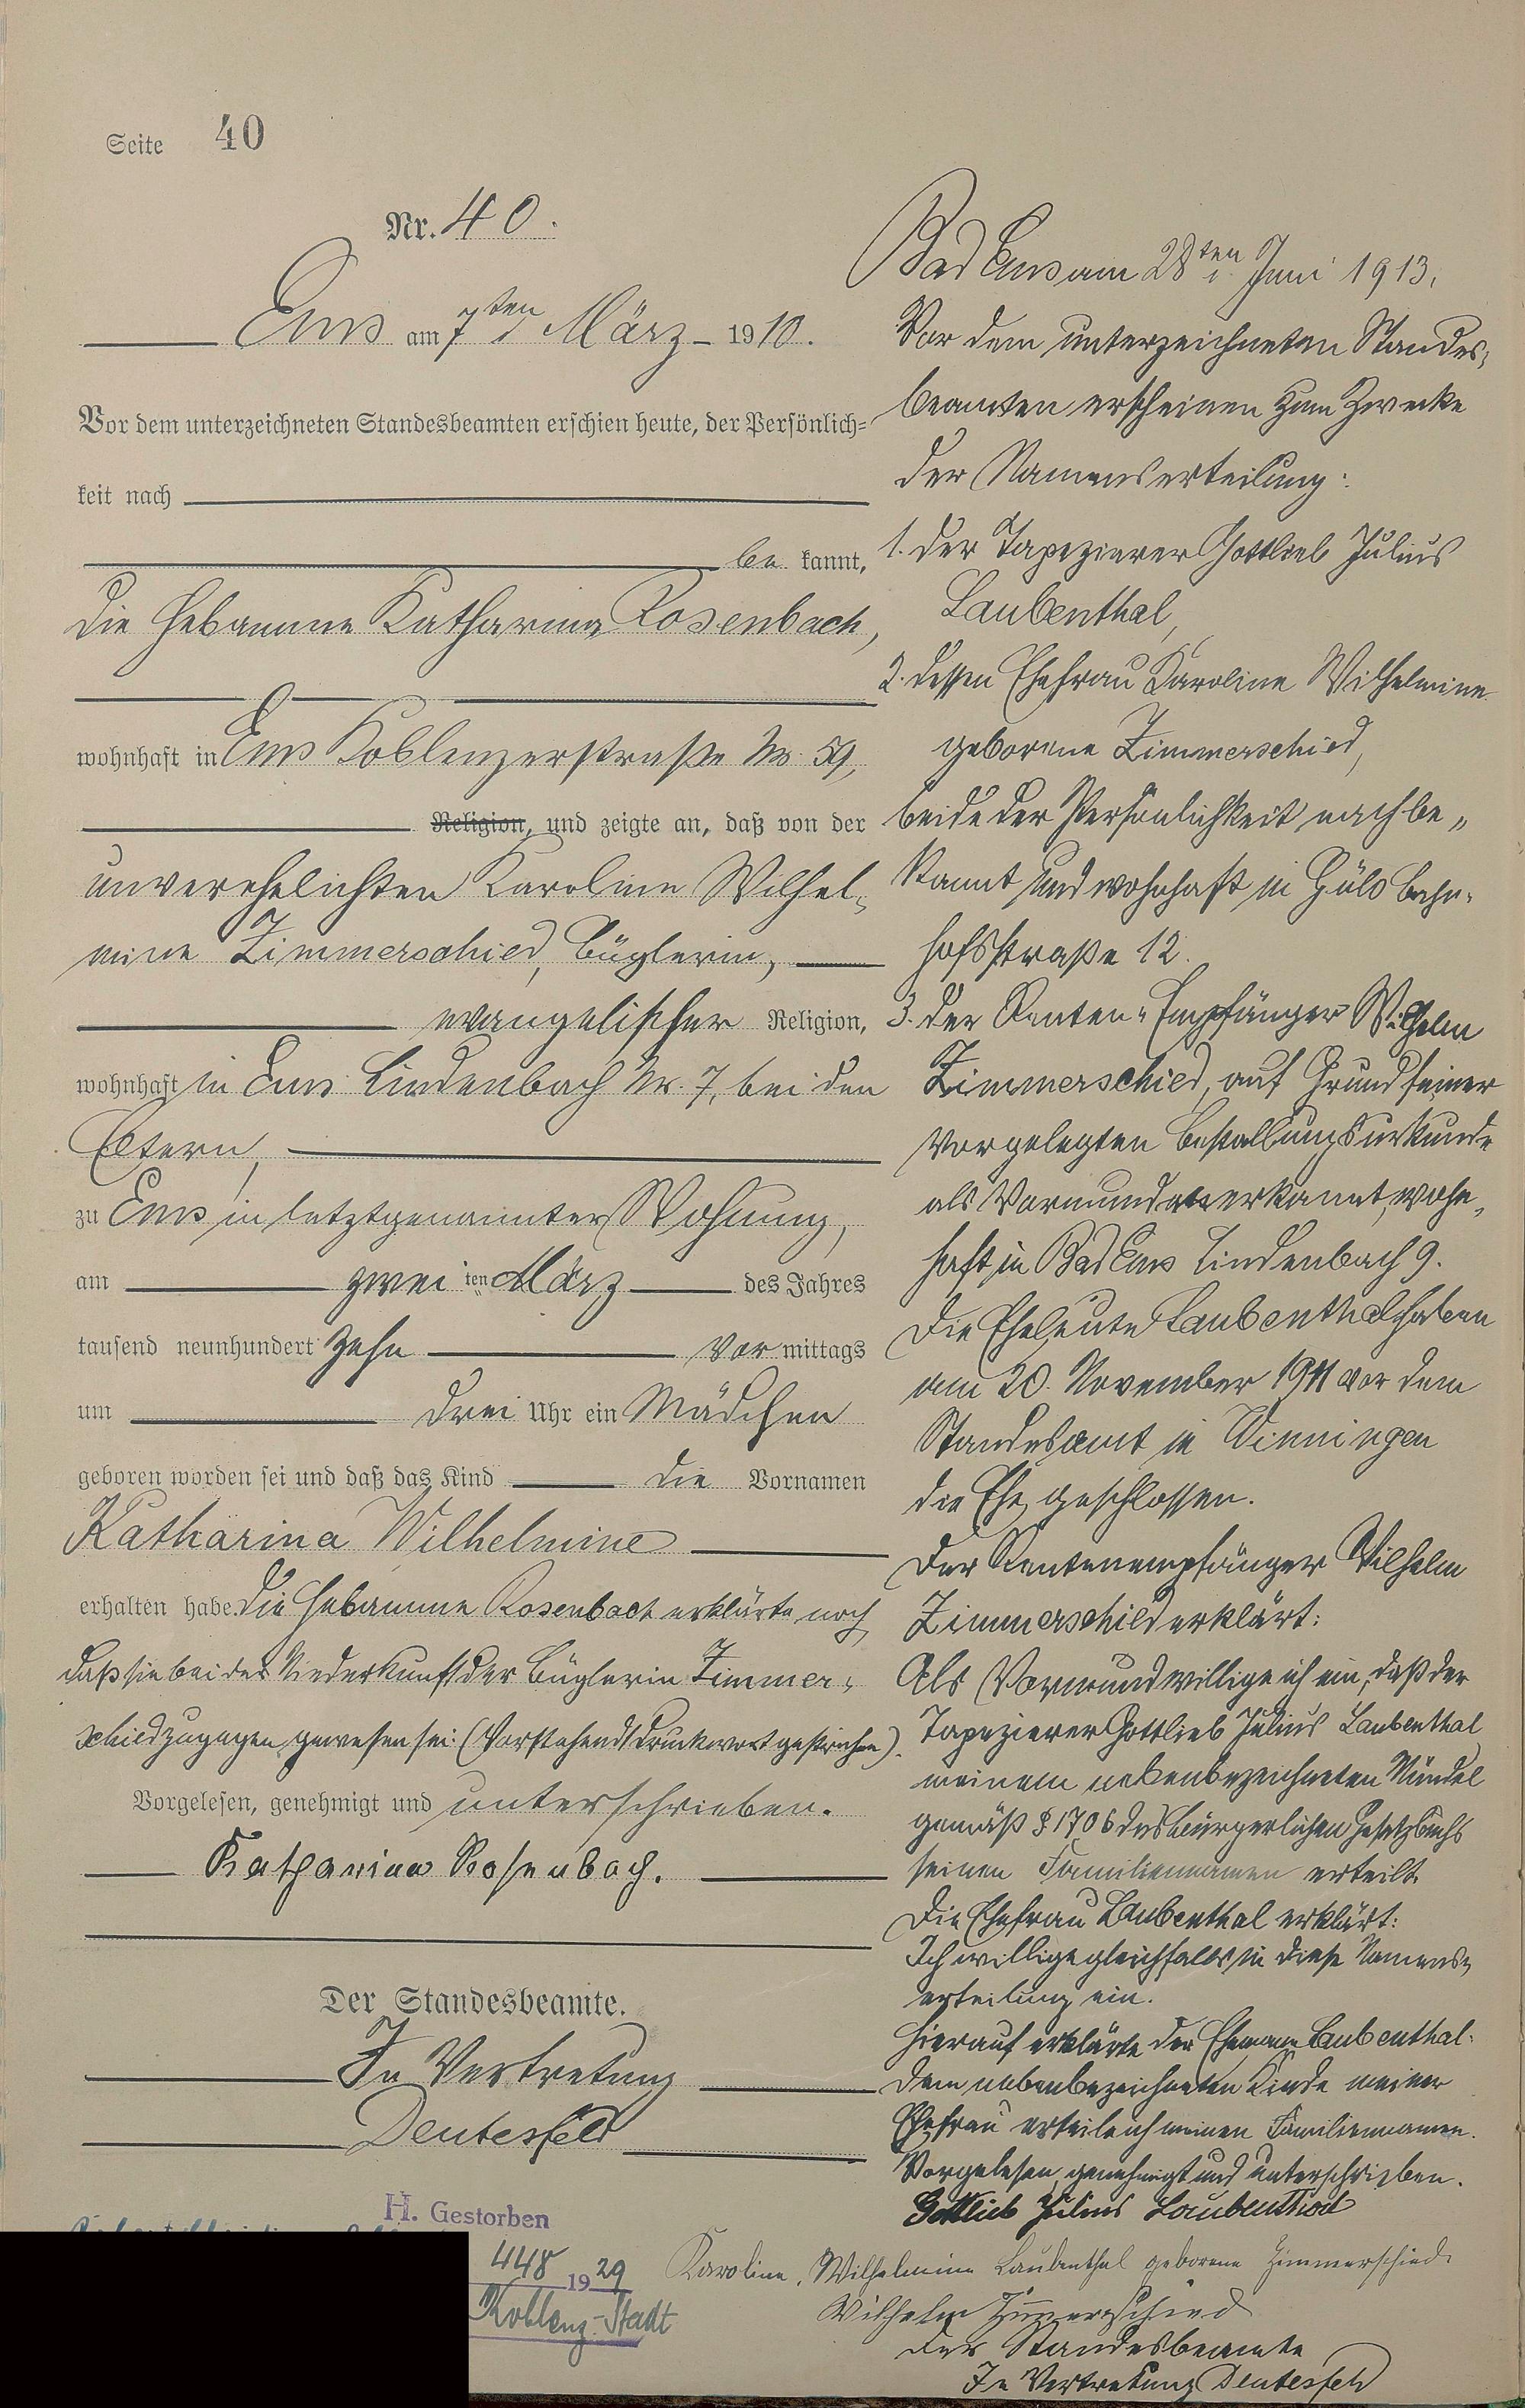 Seite 40
Nr. 40.
Ems am 7ten März 1910.
Vor dem unterzeichneten Standesbeamten erschien heute, der Persönlich=
keit nach
be kannt,
die Hebamme Katharina Rosenbach,
wohnhaft in Ems Koblenzerstraße Nr. 59,
Religion, und zeigte an, daß von der
unverehelichten Karoline Wilhel-
mine Zimmerschied, Büglerin,
evangelischer Religion,
wohnhaft in Ems Lindenbach Nr. 7, bei den
Eltern,
zu Ems in letztgenannter Wohnung,
am zweiten März des Jahres
tausend neunhundert zehn vormittags
um drei Uhr ein Mädchen
geboren worden sei und daß das Kind die Vornamen
Katharina Wilhelmine
erhalten habe. Die Hebamme Rosenbach erklärte noch
daß sie bei der Niederkunft der Büglerin Zimmer-
schied zugegen gewesen sei. (Vorstehend 1 Druckwort gestrichen).
Vorgelesen, genehmigt und unterschrieben.
Katharina Rosenbach.
Der Standesbeamte.
In Vertretung
Deutesfeld
H. Gestorben
448 1929
Koblenz-Stadt
Bad Ems am 28ten Juni 1913.
Vor dem unterzeichneten Standes-
beamten erscheinen zum Zwecke
der Namenserteilung:
1. der Tapezierer Gottlieb Julius
Laubenthal,
2. dessen Ehefrau Karoline Wilhelmine
geborene Zimmerschied,
beide der Persönlichkeit nach be-
kannt und wohnhaft in Güls Bahn-
hofsstraße 12.
3. der Renten-Empfänger Wilhelm
Zimmerschied, auf Grund seiner
vorgelegten Bestallungsurkunde
als Vormund anerkannt, wohn-
haft in Bad Ems Lindenbach 9.
Die Eheleute Laubenthal haben
am 20. November 1911 vor dem
Standesamt in Winningen
die Ehe geschlossen.
Der Rentenempfänger Wilhelm
Zimmerschied erklärt:
Als Vormund willige ich ein, daß der
Tapezierer Gottlieb Julius Laubenthal
meinem nebenbezeichneten Mündel
gemäß § 1706 des Bürgerlichen Gesetzbuchs
seinen Familiennamen erteilt.
Die Ehefrau Laubenthal erklärt:
Ich willige gleichfalls in diese Namens-
erteilung ein.
Hierauf erklärte der Ehemann Laubenthal:
Dem nebenbezeichneten Kinde meiner
Ehefrau erteile ich meinen Familiennamen.
Vorgelesen, genehmigt und unterschrieben.
Gottlieb Julius Laubenthal
Karoline Wilhelmine Laubenthal geborene Zimmerschied.
Wilhelm Zimmerschied
Der Standesbeamte
In Vertretung Deutesfeld